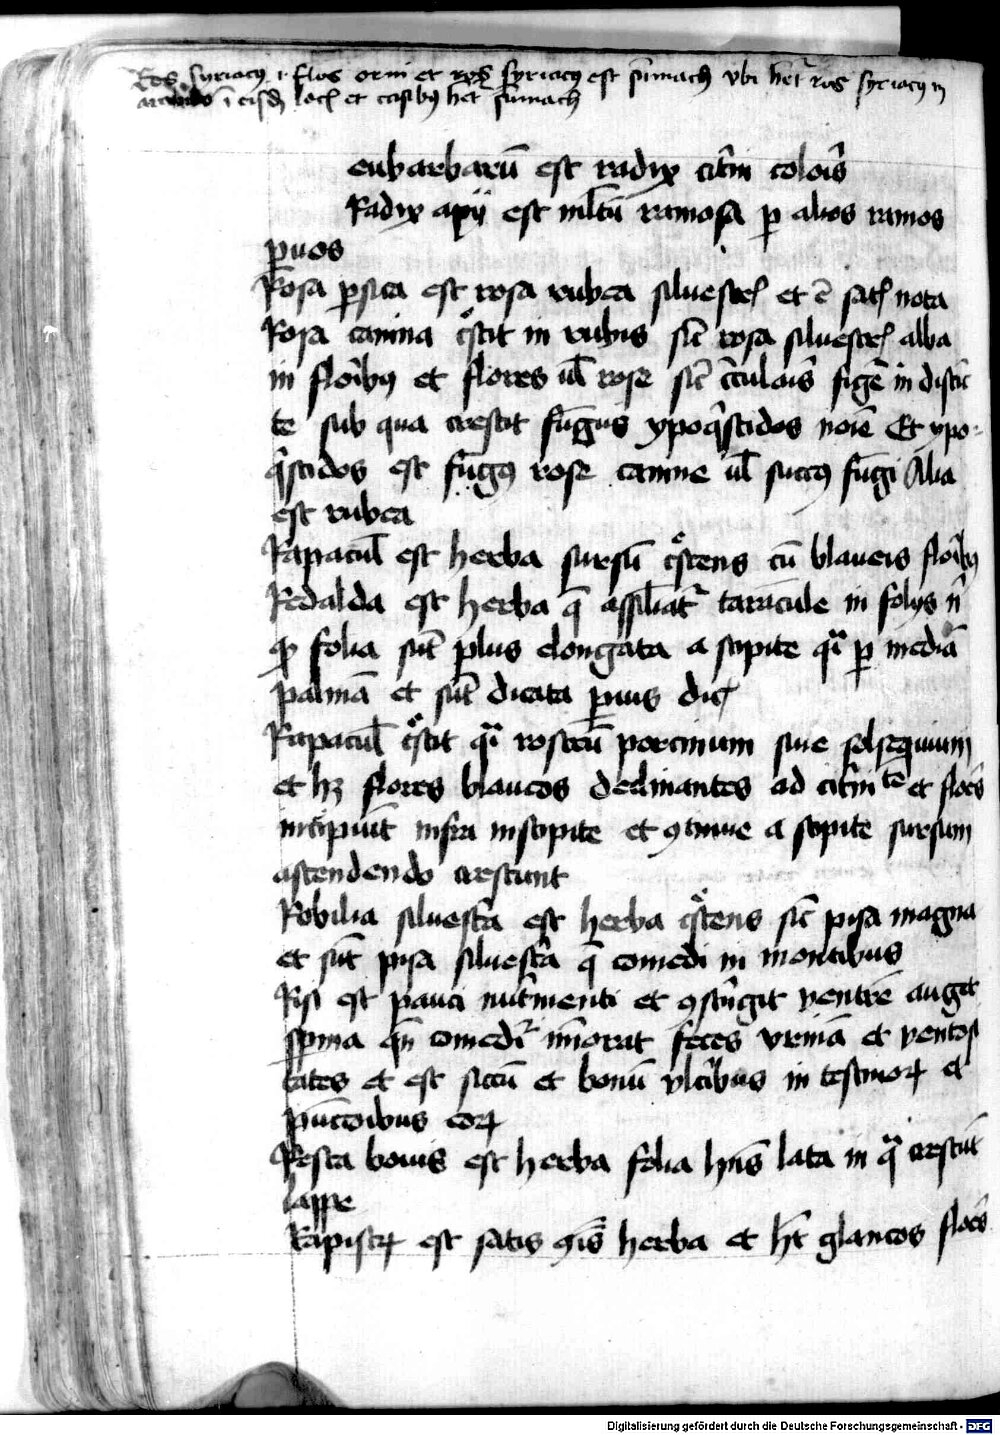 Ros syriacus i flos orni et ros syriacus est sumach vbi het ros syriacus in
ī eisd loc et casibus het sumach
eubarbarū est radix citrin coloris
Radix apij est mltū ramosa p alios ramos
puos
Rosa psica est rosa rubea siluestr et ē sat nota
Rosa canina cͦscit in rubis sic rosa siluestr alba
in florībus et flores ul rose sic circularis figē in distic
te sub qua crescit fūgus ypoq̄stidos noīe Et ypo-
q̄stidos est fūgus rose canine ul succus fūgi Alia
est rubea
Rapacul est herba sursū cͦscens cū blaueis florībus
Redalda est herba q̄ assilatr taraicule in folijs n̄
qp folia sūt plus elongata a stipite qͣ p mediā
palmā et sūt dicata prius dict
Rapacul cͦscit qͣ rostrū porcinum siue solsequium
et hꝫ flores blaueos declinantes ad citrin te et flores
incipiūt infra in stipite et ꝯtinue a stipite sursum
ascendendo crescunt
Robilia siluestra est herba cͦscens sic pisa magna
et sūt pisa siluestra q̄ comedi in montibus
Risi est pauci nutrimenti et ꝯstrīgit ventrē augit
sperma qn̄ comedr īmorat feces vrinā et ventosi
tates et est siccū et bonū vlcībus in testinorꝝ et
pūctōibus eorꝝ
Resta bouis est herba folia hn̄s lata in qͣ crescūt
lappe
Rapistrꝝ est satis ꝯis herba et ht glaucos flores
Digitalisierung gefördert durch die Deutsche Forschungsgemeinschaft - DFG